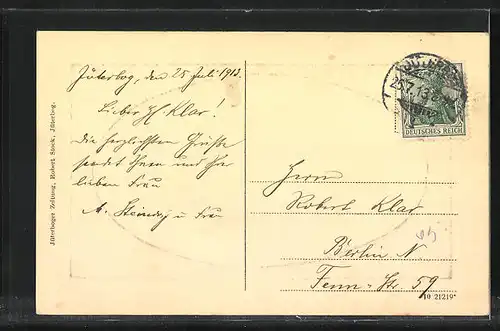 Jüterboger Zeitung, Robert Stock, Jüterbog.
Jüterbog, den 25 Juli 1913.
Lieber H. Klar!
die herzlichsten Grüße
sendet Ihnen und Ihrer
lieben Frau
A. Steindg u Frau
25.7.13
DEUTSCHES REICH
Herrn
Robert Klar
Berlin N
Fenn-Str. 59
10 21219*